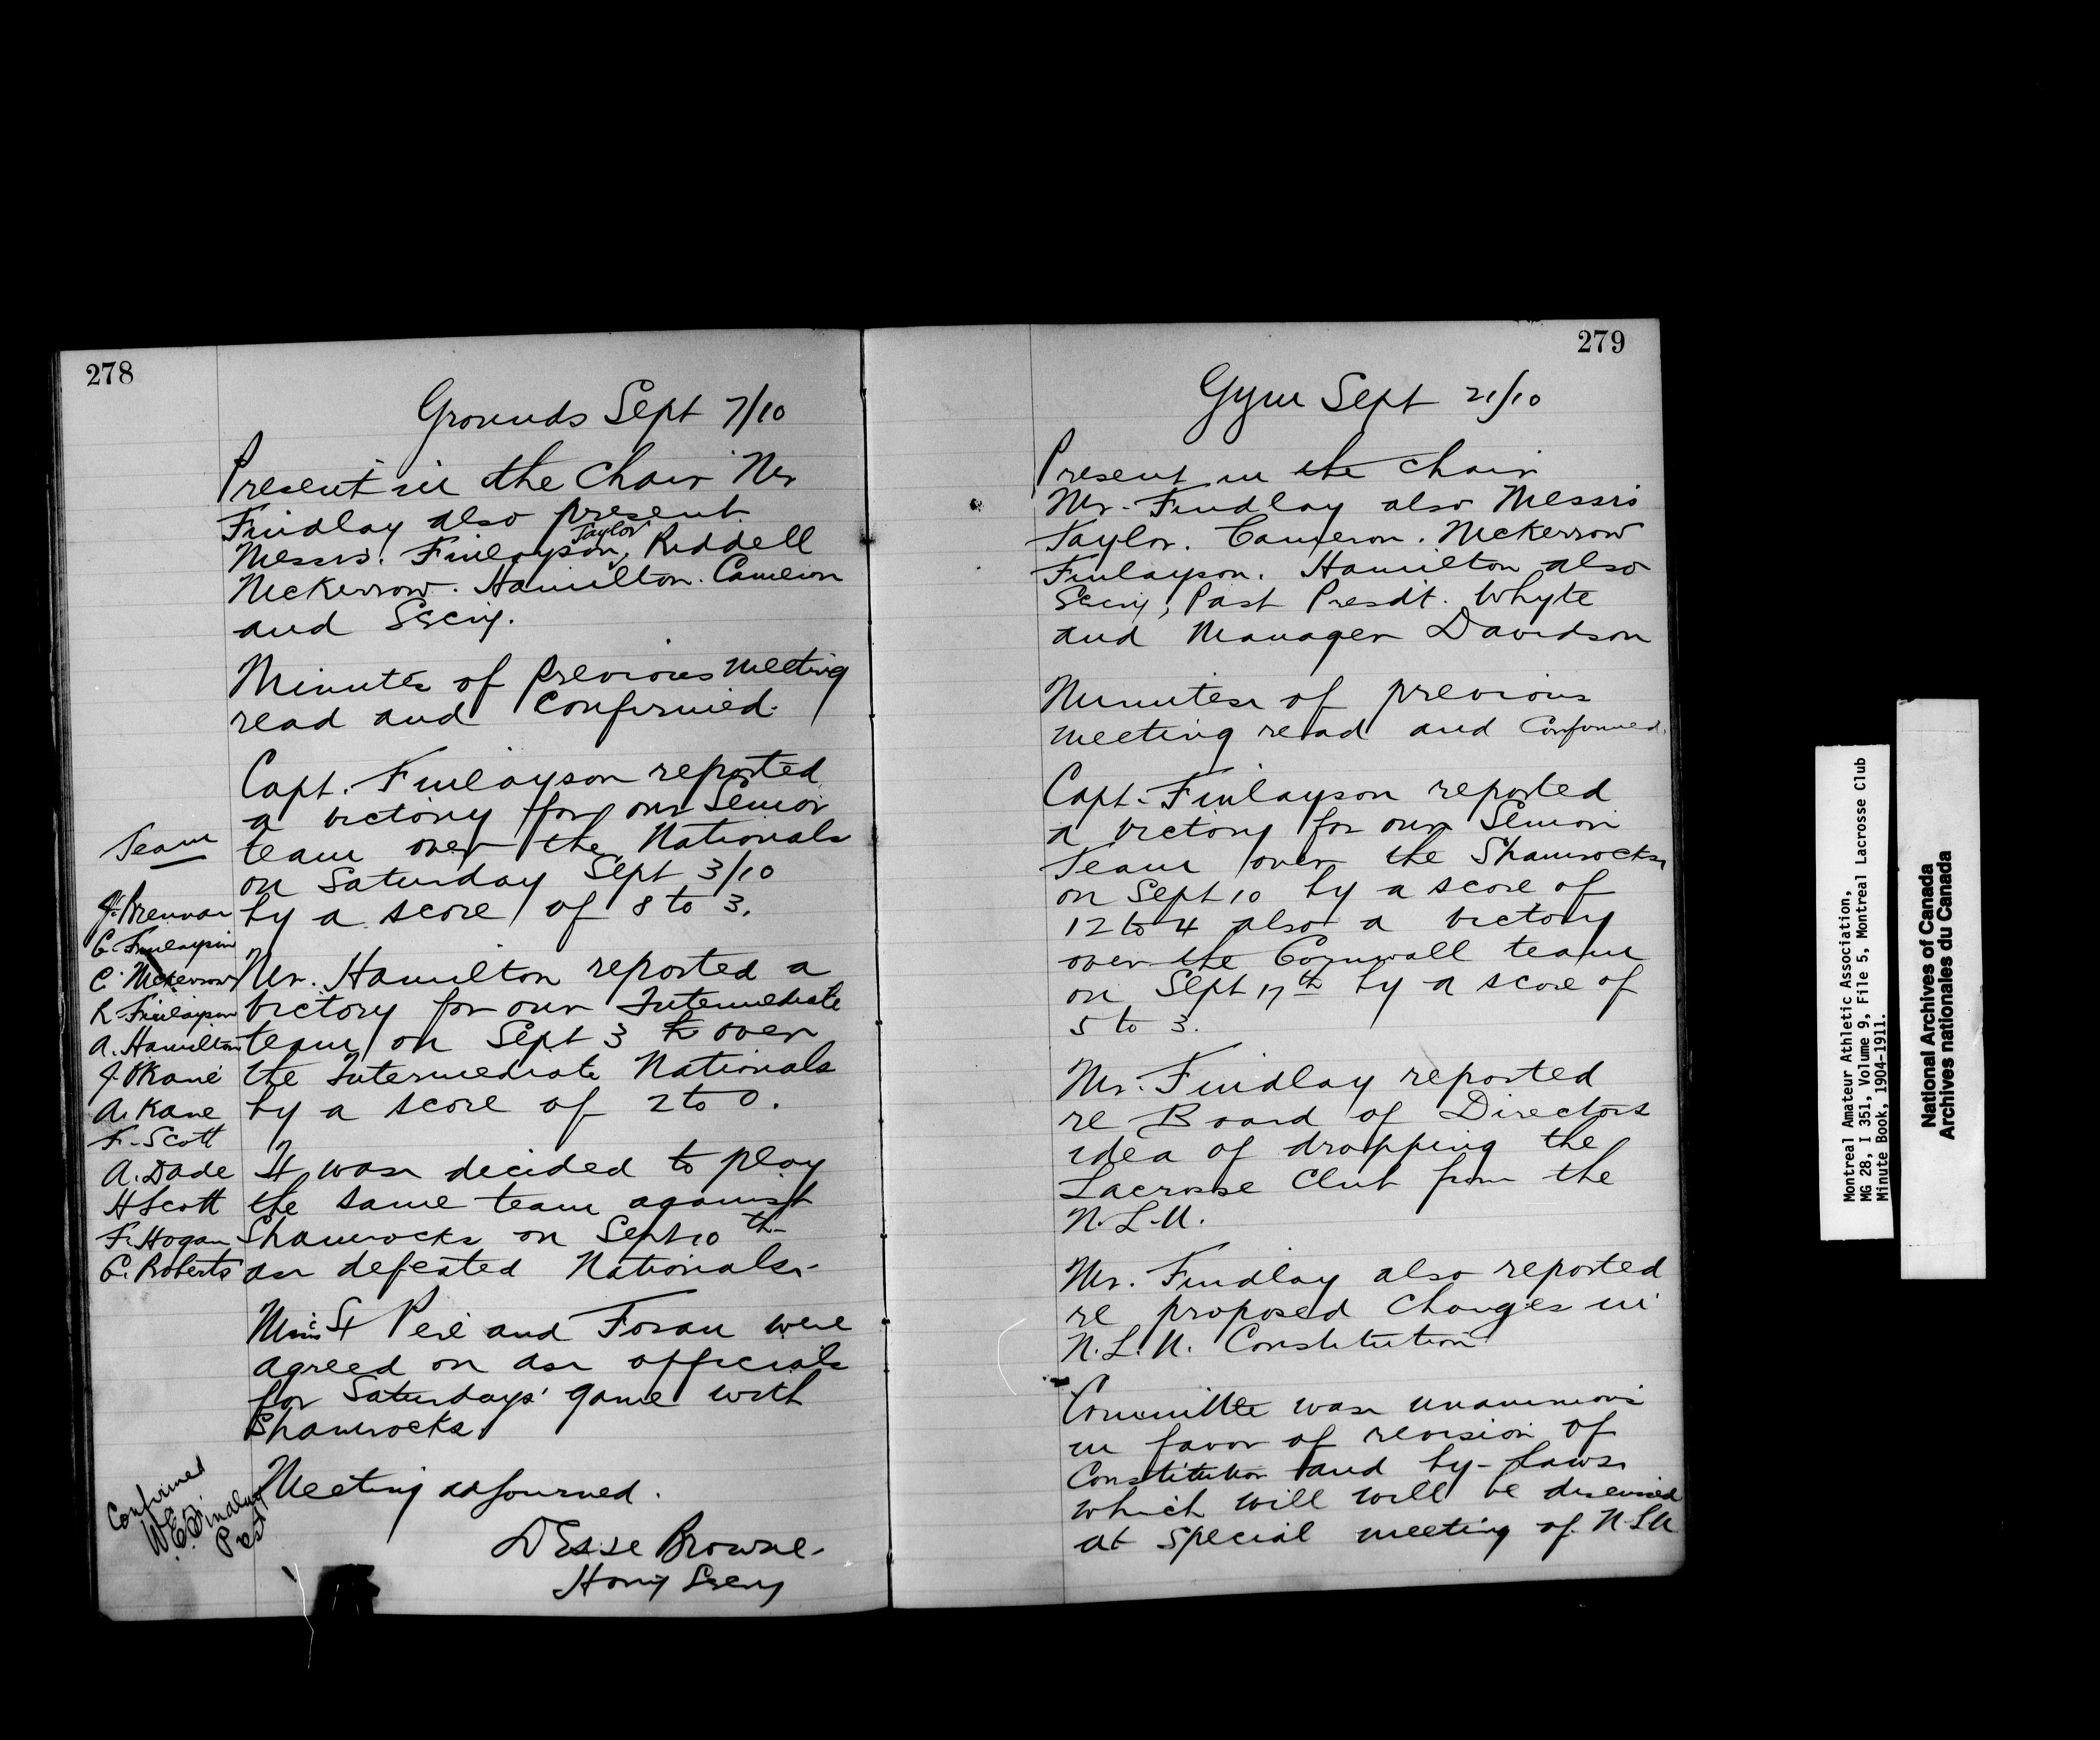 278
Grounds Sept 7/10
Present in the Chair Mr
Findlay also present
Taylor
Messrs. Finlayson, Riddell
McKerrow. Hamilton. Cameron
and Secry.
Minutes of previous meeting
read and confirmed.
Capt. Finlayson reported
a victory for our Senior
team over the Nationals
on Saturday Sept 3/10
by a score of 8 to 3.
Mr. Hamilton reported a
victory for our Intermediate
team on Sept 3 over
the Intermediate Nationals
by a score of 2 to 0.
It was decided to play
the same team against
Shamrocks on Sept 10th
as defeated Nationals.
Team
J. Brennan
G. Finlayson
C. McKerrow
R. Finlayson
A. Hamilton
J. Kane
A. Kane
F. Scott
A. Dade
H Scott
F. Hogan
G. Roberts
St Pere and Foran were
agreed on as officials
for Saturdays' game with
Shamrocks.
Meeting adjourned.
Confirmed
W.E. Findlay
Pest
D Esse Browne.
Hony Secry
279
Gym Sept 21/10
Present in the chair
Mr. Findlay also Messrs
Taylor. Cameron. McKerrow
Finlayson. Hamilton also
Secry, Past Presdt. Whyte
and Manager Davidson
Minutes of previous
meeting read and Confirmed.
Capt. Finlayson reported
a victory for our Senior
Team over the Shamrocks
on Sept 10 by a score of
12 to 4 also a victory
over the Cornwall team
on Sept 17th by a score of
5 to 3.
Mr. Findlay reported
re Board of Directors
idea of dropping the
Lacrosse Club from the
N.L.U.
Mr. Findlay also reported
re proposed changes in
N.L.U. Constitution
Committee was unanimous
in favor of revision of
Constitution and by-laws
which will will be discussed
at special meeting of N.L.U
Montreal Amateur Athletic Association,
MG 28, I 351, Volume 9, File 5, Montreal Lacrosse Club
Minute Book, 1904-1911.
National Archives of Canada
Archives nationales du Canada